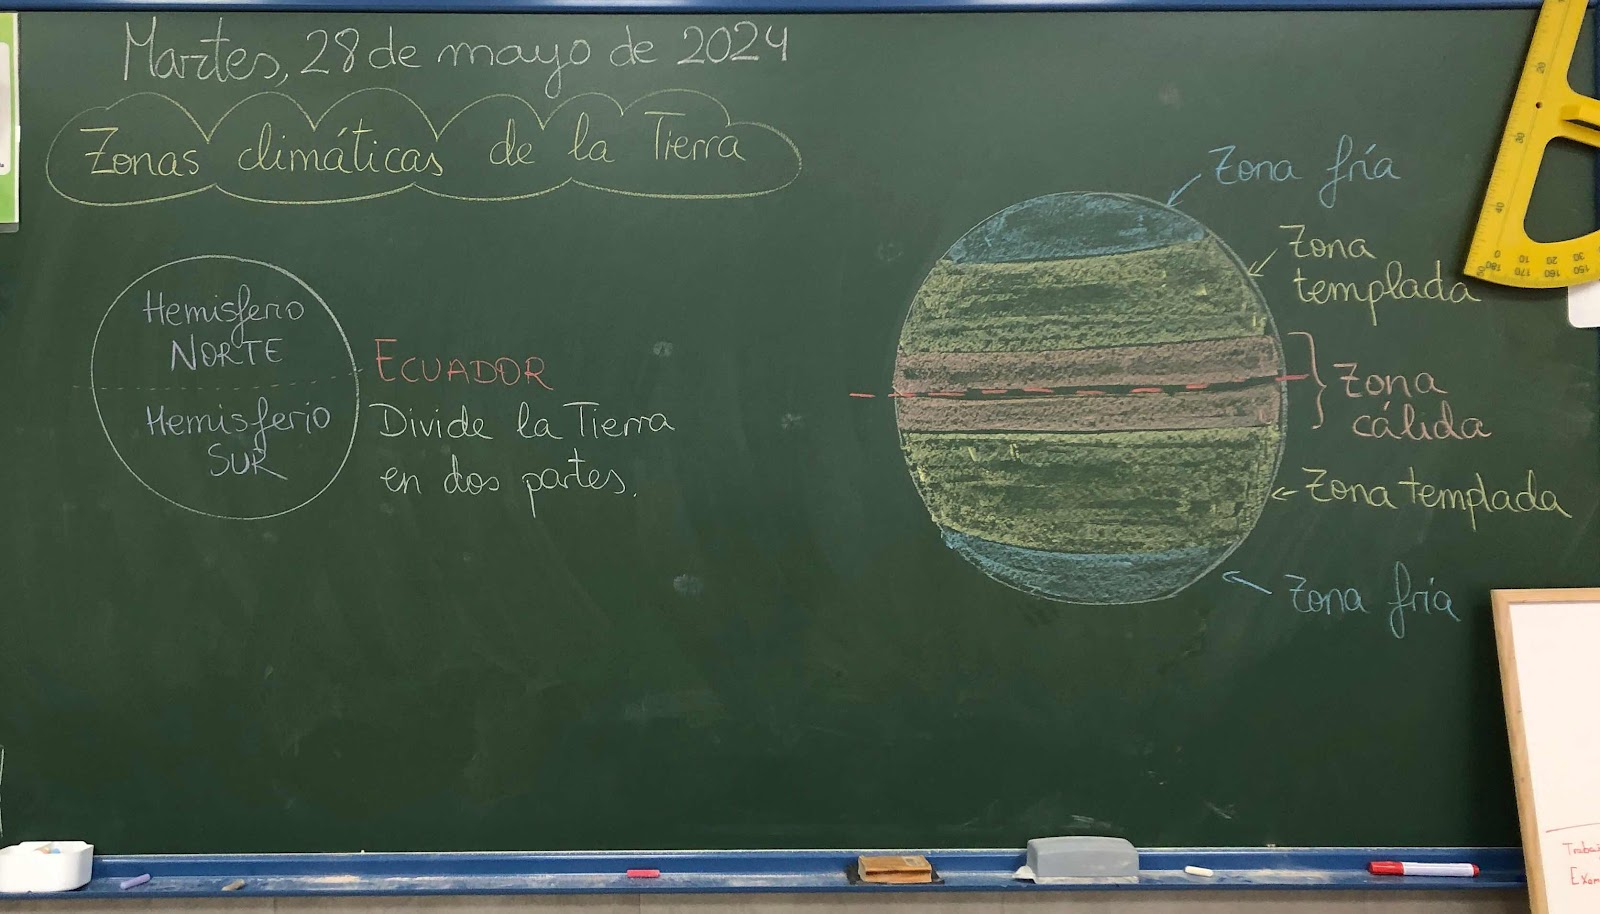 Martes, 28 de mayo de 2024
Zonas climáticas de la Tierra
Hemisferio
NORTE
Hemisferio
SUR
ECUADOR
Divide la Tierra
en dos partes.
Zona fría
Zona
templada
Zona
cálida
Zona templada
Zona fría
20
30
40
0 10 20 30
180 170 160 150